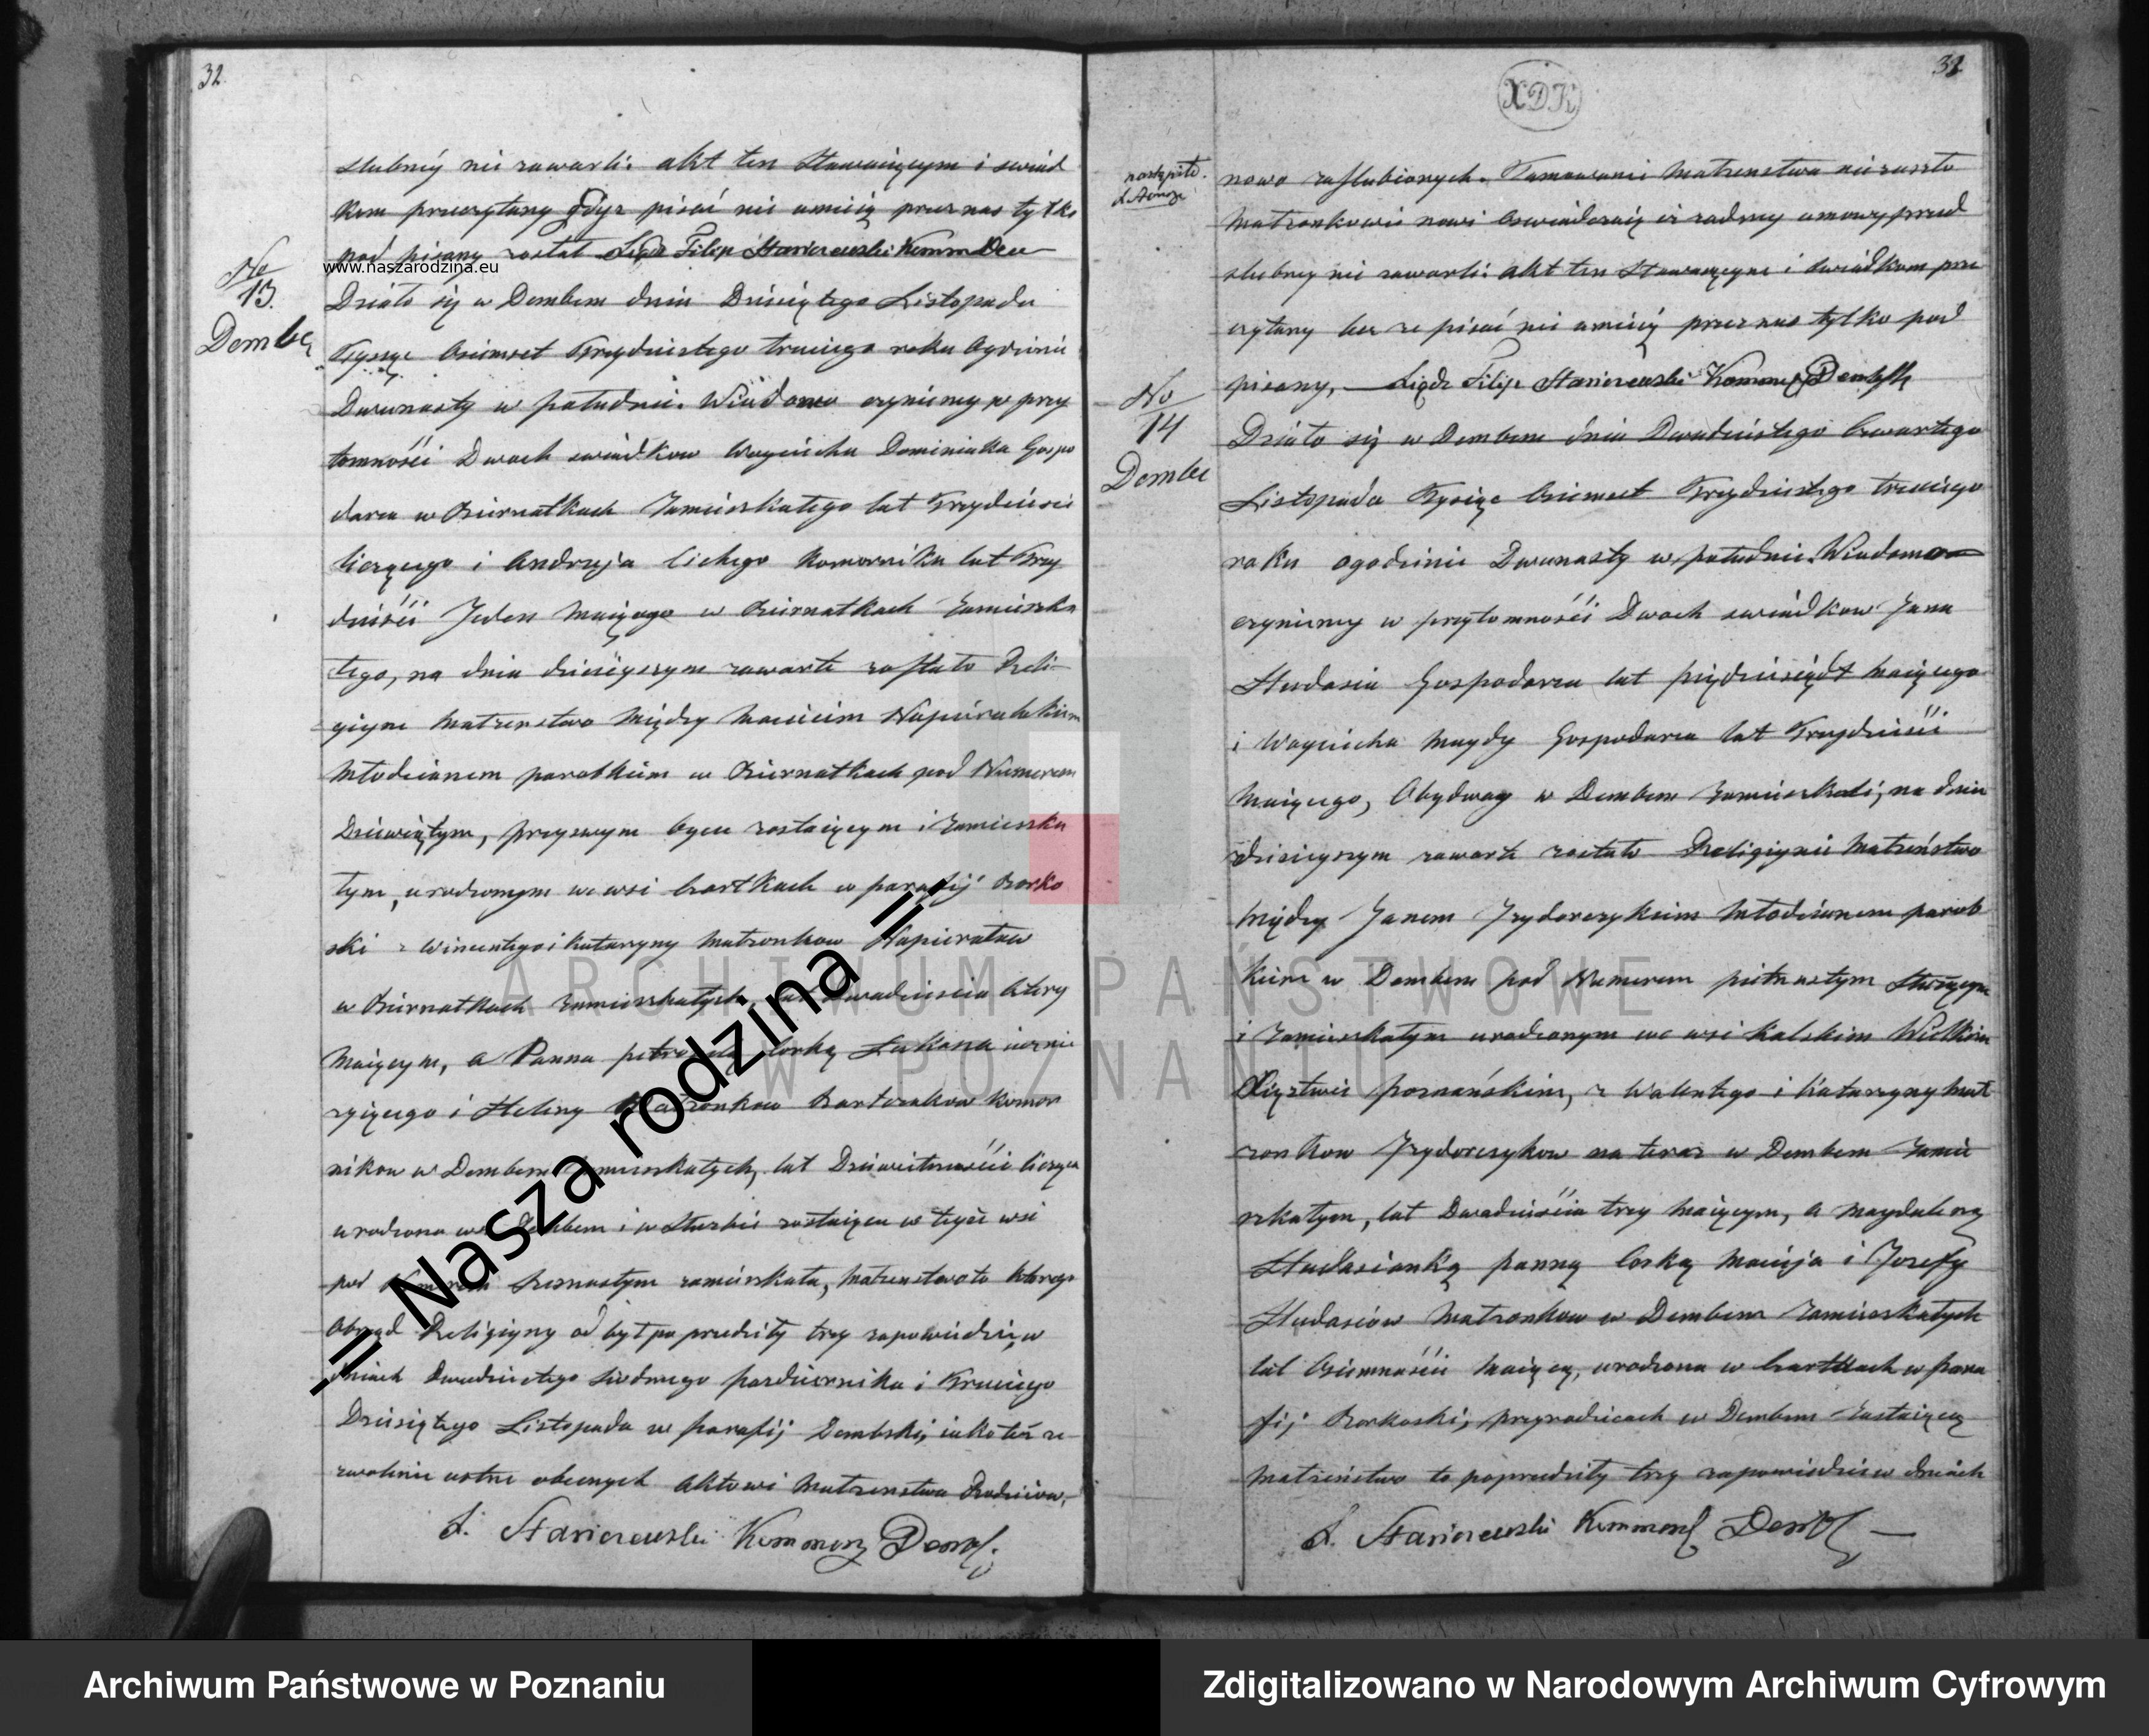 32.
slubnéy nie zawarli: akt ten Stawaiącym i swiad
kom przeczytany gdyż pisać nie umieią przez nas tylko
pod pisany został Xiądz Filip Staniszewski Kommen
www.naszarodzina.eu
No
13.
Dembe
Działo się w Dembem dnia Dziesiątego Listopada
Tysząc Osimset Trzydziestego trzeciego roku Ogodzinie
Dwunasty w południe. Wiadomo czyniemy w przy
tomności Dwoch swiadkow Woyciecha Dominiaka Gospo
darza w Biernatkach Zamieszkałego lat Trzydzieści
liczącego i Andrzeja Cichego Komornika lat Trzy
dzieści Jeden Maiącego w Biernatkach Zamieszka
łego, na dniu dzisieyszym zawarte zostało Reli
giyne Matzenstwo Między Maciéim Napierałskiem
Młodzianem parobkiem w Biernatkach pod Numerem
Dziewiątym, przyswym oycu zostaiącym i Zamieszka
łym, urodzonym we wsi Czartkach w parafij Borko
ski z Wincentego i Katarzyny Matzonkow Napierałow
w Biernatkach Zamieszkałych, lat Dwadziescia Cztery
Maiącym, a Panna petronela Corką Łukasza iuz nie
zyiącego i Heleny Matzonkow Bartozakow Komor
nikow w Dembem Zamieszkałych, lat Dziewietnaści licząca
urodzona we Dembem i w Służbie zostaiąca w teyże wsi
pod Numerem Szesnastym zamieszkała, Matzenstwo to którego
Obrząd Religiyny od był po przedziły trzy zapowiedzi w
dniach Dwudziestego Siodmego pazdziernika i Trzeciego
Dziesiątego Listopada w parafij Dembski, iako téz ze
zwolenie ustne obecnych Aktowi Matzenstwa Rodziców,
X. Staniszewski Kommen Demb:
31
XDK
następste.
X. Stanisz
nowo zaślubionych. Tamowanie Matzenstwa nie zaszło
Matzonkowie nowi Oswiadczaią iz zadney umowy przed
slubney nie zawarli: akt ten Stawaiącym i swiadkom prze
czytany lecz ze pisać nie umieią przez nas tylko pod
pisany, Xiądz Filip Staniszewski Kommen Dembski
No
14
Dembe
Działo się w Dembem dnia Dwudziestego Czwartego
Listopada Tysiąc Osimset Trzydziestego trzeciego
roku ogodzinie Dwunasty w południe. Wiadomo
czyniemy w przytomności Dwoch swiadkow Jana
Studasia Gospodarza lat pięćdziesiąt Maiącego
i Woyciecha Maydy Gospodarza lat Trzydzieści
Maiącego, Obydway w Dembem Zamieszkali, na dniu
dzisieyszym zawarte zostało Religiynie Matzeństwo
Między Janem Jzydorczykiem Młodzianem parob
kiem w Dembem pod Numerem pietnastym Służącym
i Zamieszkałym urodzonym we wsi Kalskim Wielkim
Xięztwie poznańskim, z Walentego i Katarzyny Mał
zonkow Jzydorczykow na teraz w Dembem Zamie
szkałym, lat Dwadzieścia trzy Maiącym, a Magdaleną
Studasianką panną Corką Macieja i Jozefy
Studasiów Matzonkow w Dembem Zamieszkałych
lat Osiemnaście Maiącą, urodzona w Czartkach w para
fij Borkoski, przyrodzicach w Dembem Zostaiącą
Matzeństwo to poprzedziły trzy zapowiedzi w dniach
X. Staniszewski Kommen Demb
|| Nasza rodzina ||
ARCHIWUM PAŃSTWOWE
W POZNANIU
Archiwum Państwowe w Poznaniu
Zdigitalizowano w Narodowym Archiwum Cyfrowym